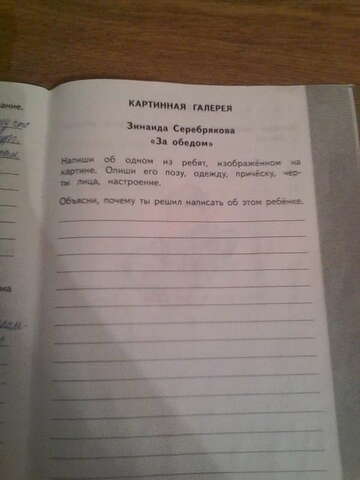 КАРТИННАЯ ГАЛЕРЕЯ
Зинаида Серебрякова
«За обедом»
Напиши об одном из ребят, изображённом на
картине. Опиши его позу, одежду, причёску, чер-
ты лица, настроение.
Объясни, почему ты решил написать об этом ребёнке.